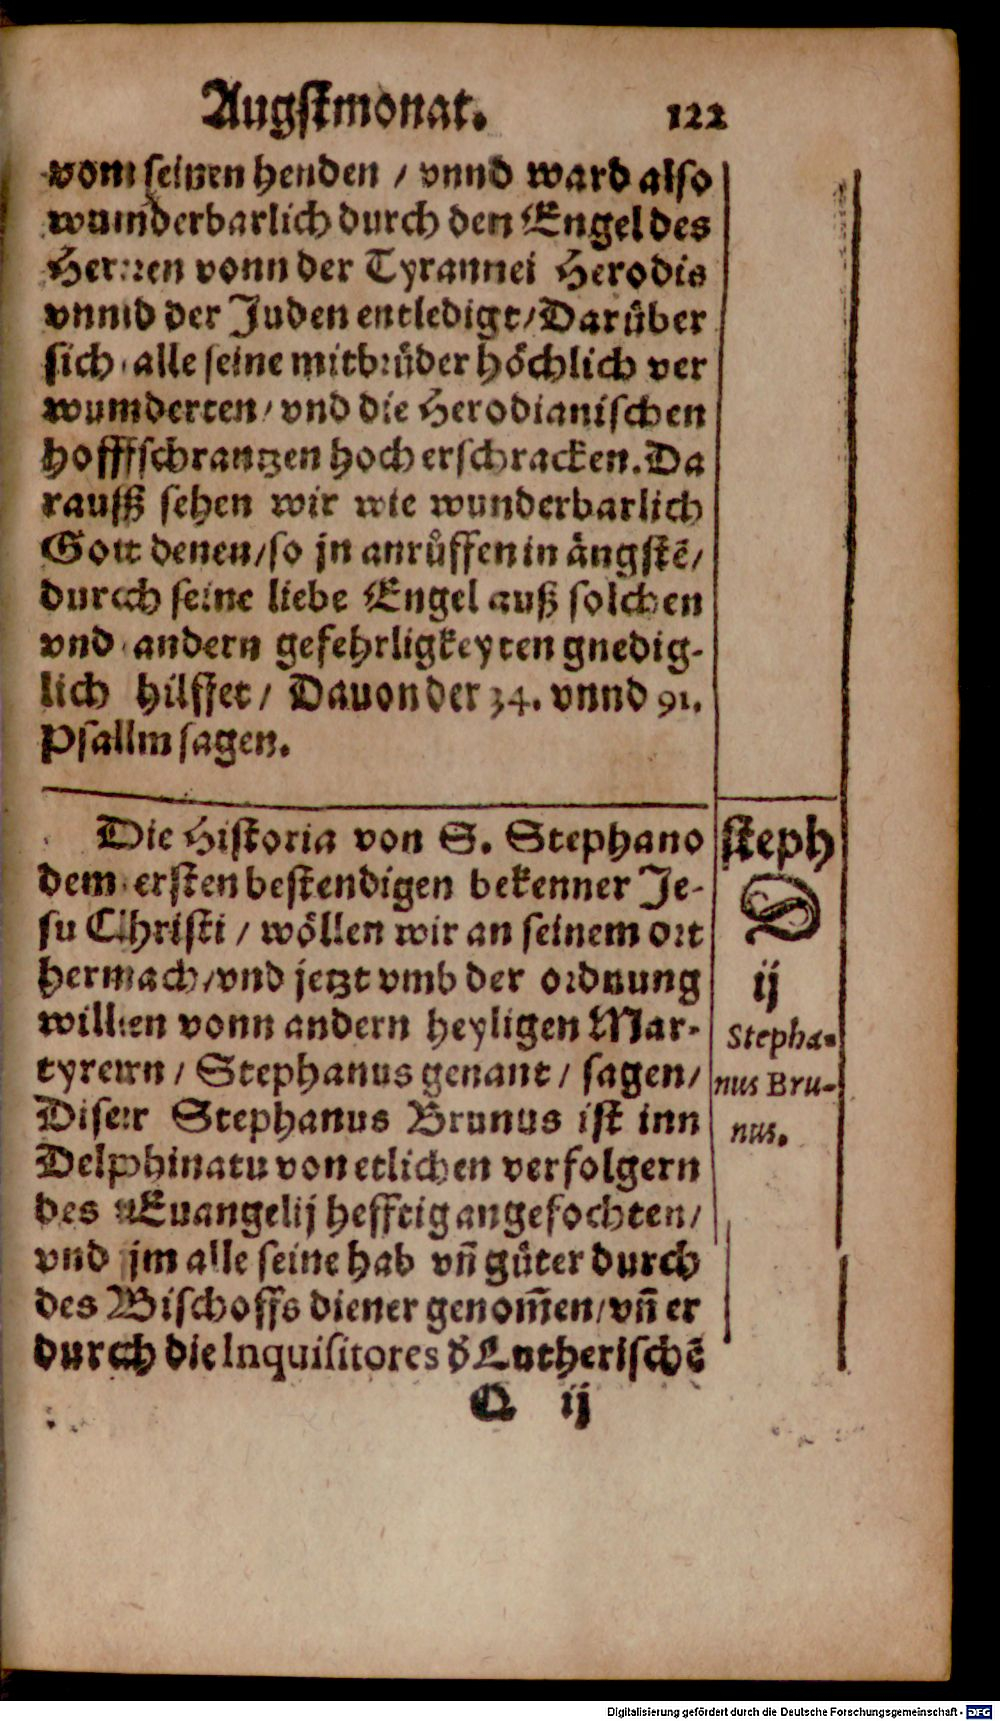 Augstmonat. 122
vom seinen henden / vnnd ward also
wunderbarlich durch den Engel des
Herren vonn der Tyrannei Herodis
vnnd der Juden entledigt / Darüber
sich alle seine mitbrüder höchlich ver
wunderten / vnd die Herodianischen
hoffschrantzen hoch erschracken. Da
rauß sehen wir wie wunderbarlich
Gott denen / so jn anrůffen in ängstẽ /
durch seine liebe Engel auß solchen
vnd andern gefehrligkeyten gnedig-
lich hilffet / Dauon der 34. vnnd 91.
Psalm sagen.
Die Historia von S. Stephano
dem ersten bestendigen bekenner Je-
su Christi / wöllen wir an seinem ort
hernach / vnd jetzt vmb der ordnung
willen vonn andern heyligen Mar-
tyrern / Stephanus genant / sagen /
Diser Stephanus Brunus ist inn
Delphinatu von etlichen verfolgern
des Euangelij hefftig angefochten /
vnd jm alle seine hab vñ gůter durch
des Bischoffs diener genom̃en / vñ er
durch die Inquisitores d̕ Lutherischẽ
steph
D
ij
Stepha-
nus Bru-
nus.
Q ij
Digitalisierung gefördert durch die Deutsche Forschungsgemeinschaft - DFG